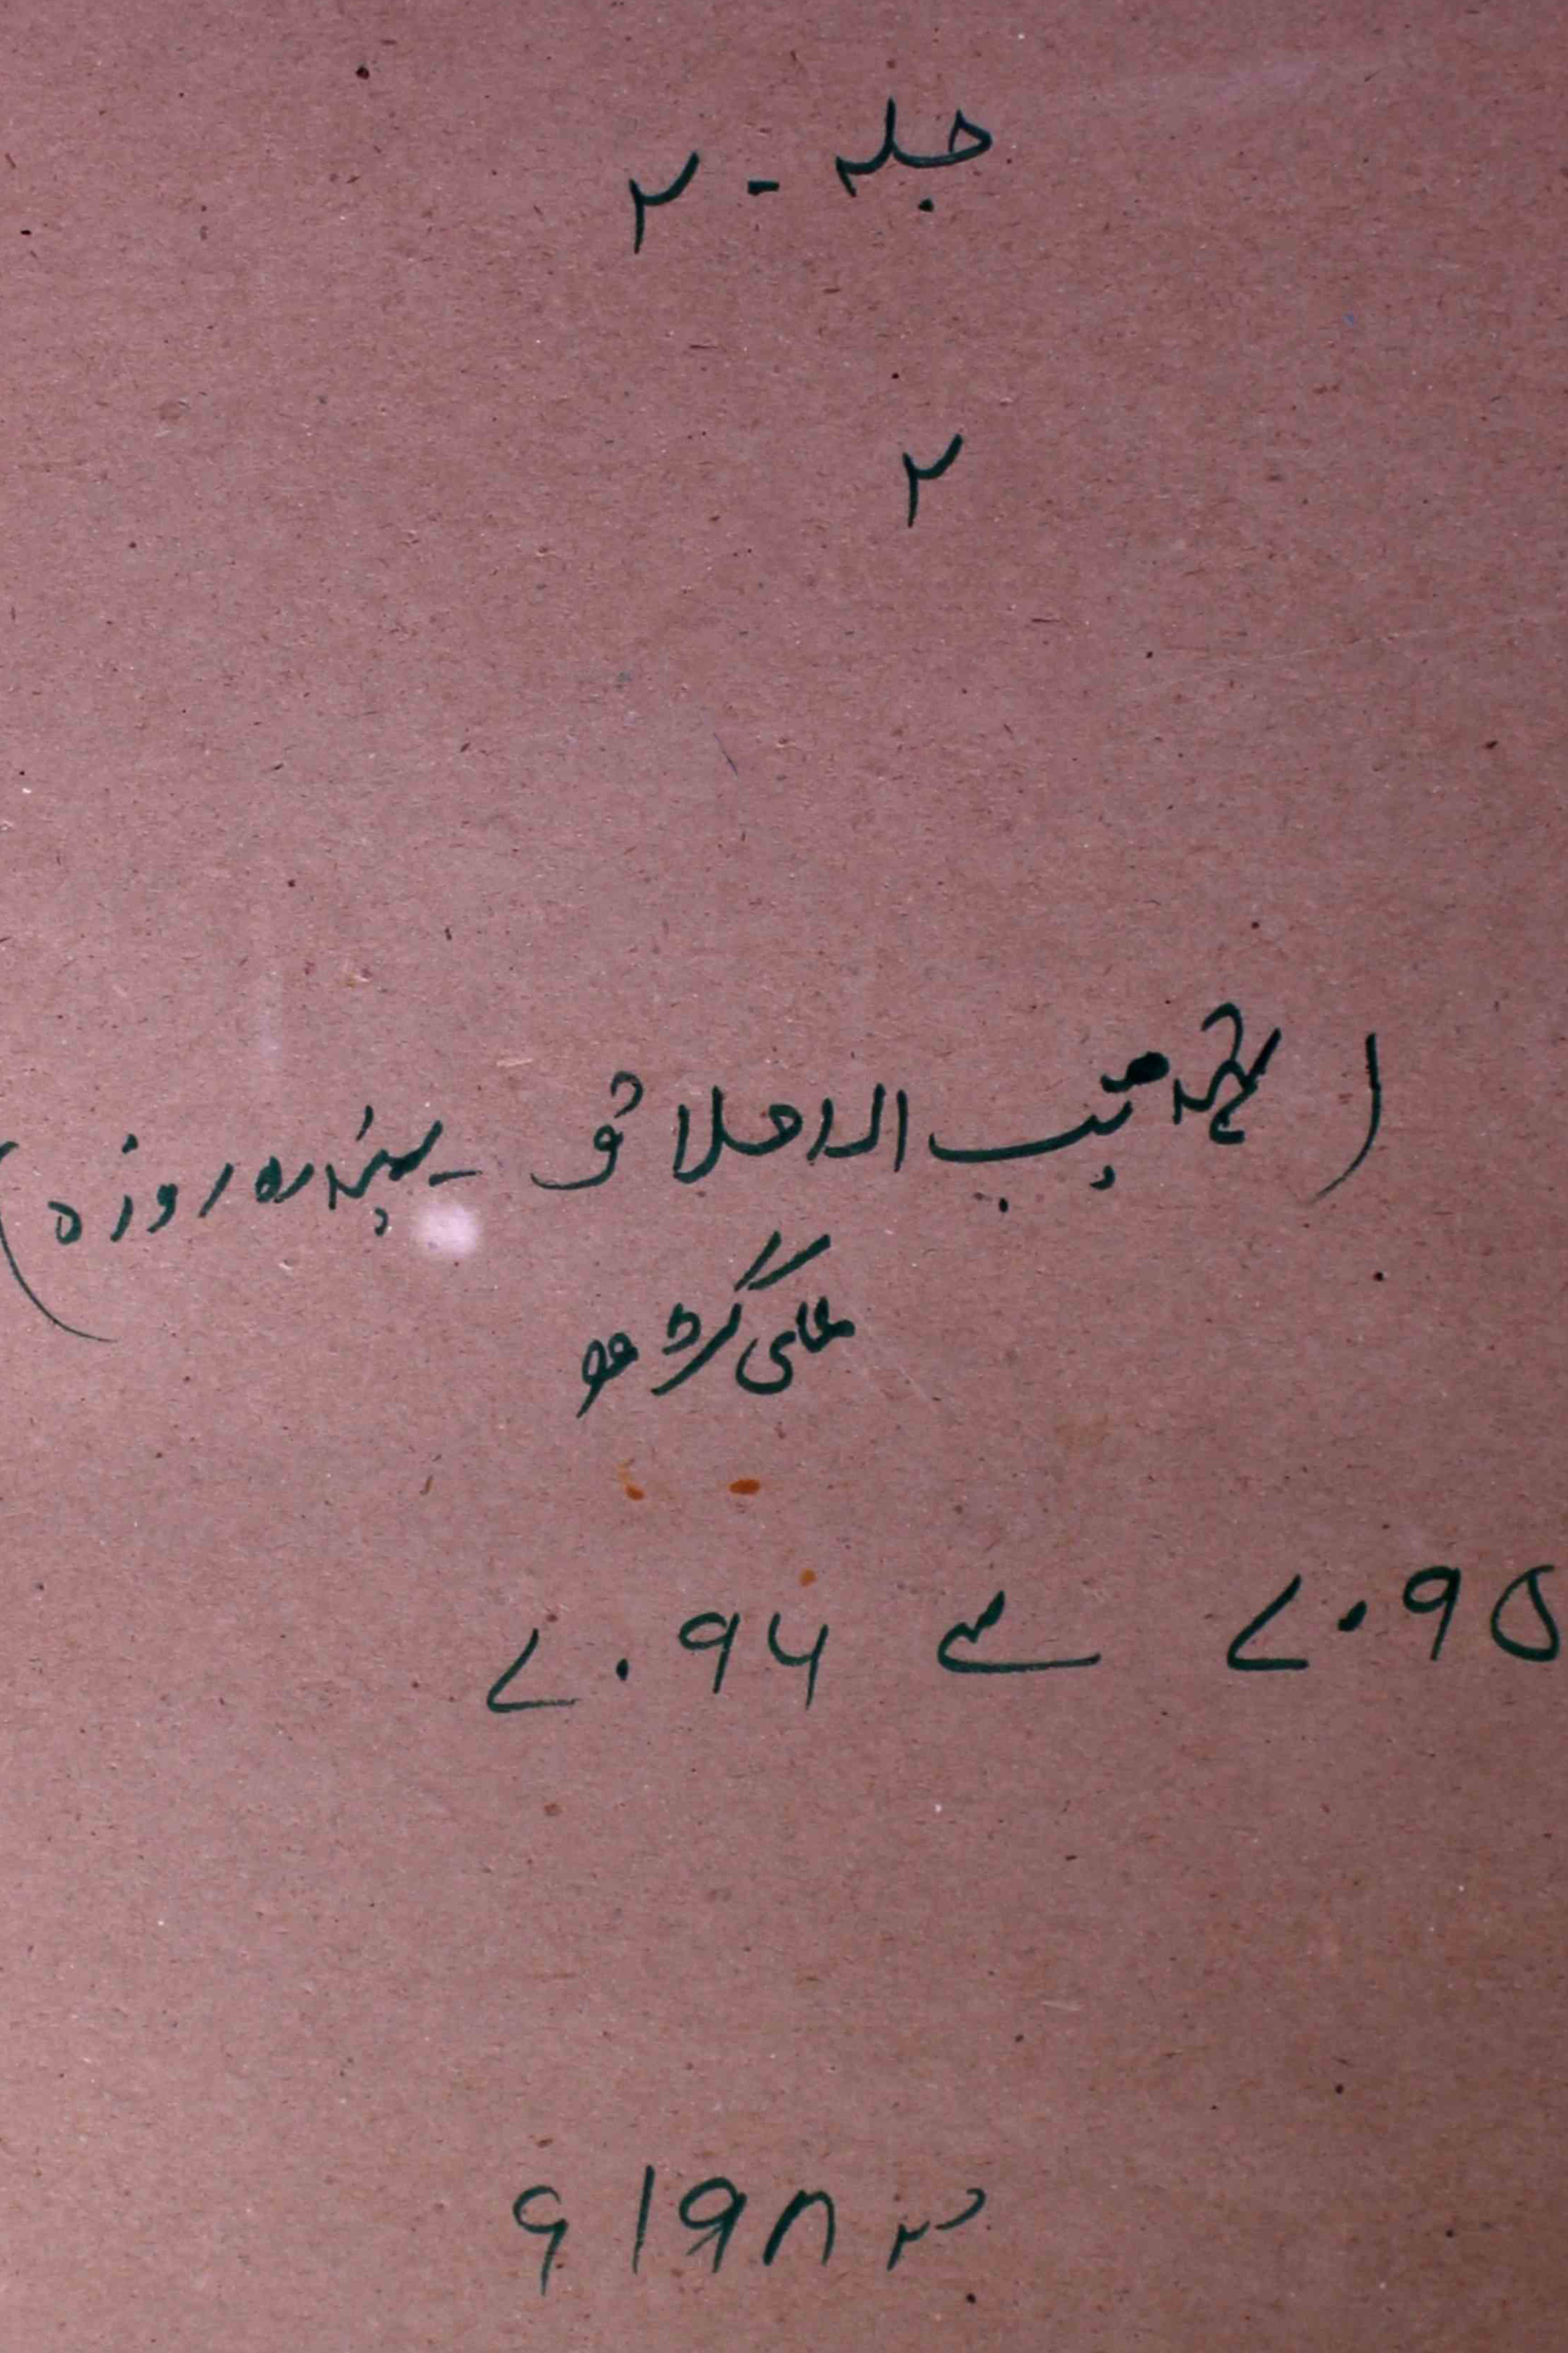 جلد - ۲
۲
(تہذیب الاخلاق - پندرہ روزہ)
علی گڑھ
۷۰۹۵ سے ۷۰۹۶
۱۹۸۲ء